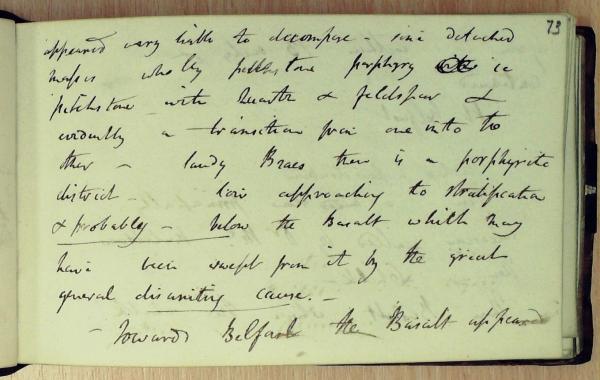 73
appeared very liable to decompose - some detached
masses wholly pitchstone porphyry ie
pitchstone with Quartz & feldspar &
evidently a transition from one into the
other - Sandy Braes there is a porphyritic
district - low approaching to stratification
& probably - below the Basalt which may
have been swept from it by the great
general disuniting cause. -
- Towards Belfast the Basalt appeared